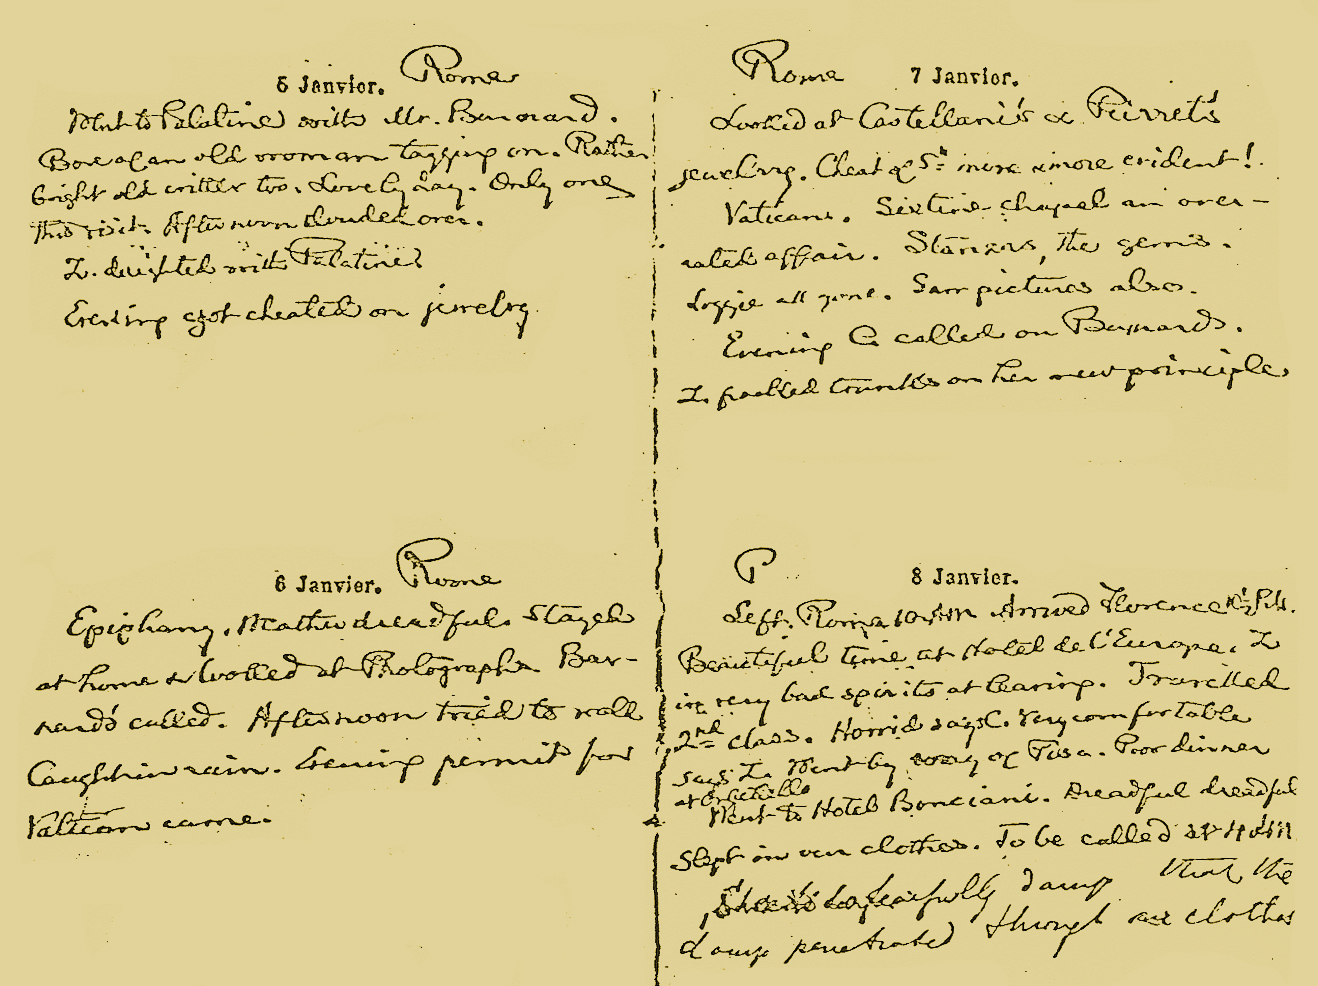 5 Janvier. Rome
Went to Palatine with Mr. Barnard.
Bore of an old woman tagging on. Rather
bright old critter too. Lovely day. Only one
this visit. Afternoon clouded over.
L. delighted with Palatine
Evening got cheated on jewelry
6 Janvier. Rome
Epiphany. Weather dreadful. Stayed
at home & looked at Photographs Bar-
nards called. Afternoon tried to walk
Caught in rain. Evening permit for
Vatican came.
Rome 7 Janvier.
Looked at Castellani's &
jewelry. Cheat of 5th more & more evident!
Vatican. Sixtine chapel an over-
rated affair. Stanzas, the gems.
Loggie all gone. Saw pictures also.
Evening C. called on Barnards.
L. packed trunks on her new principle
P 8 Janvier.
Left Rome 10 AM Arrived Florence
Beautiful time at Hotel de l'Europe. L
in very bad spirits at leaving. Travelled
2nd class. Horrid says C. Very comfortable
says L. Went by way of Pisa. Poor dinner
at Orbetello
Went to Hotel Bonciani. Dreadful dreadful
Slept in our clothes. To be called at 4 AM
Sheets so fearfully damp that the
damp penetrated through our clothes